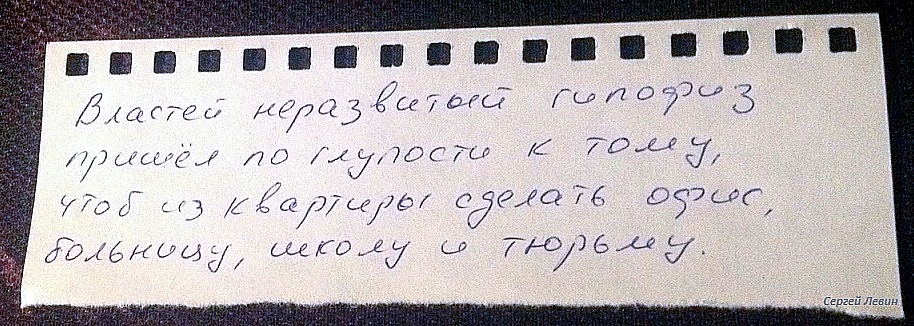 Властей неразвитый гипофиз
пришёл по глупости к тому,
чтоб из квартиры сделать офис,
больницу, школу и тюрьму.
Сергей Левин